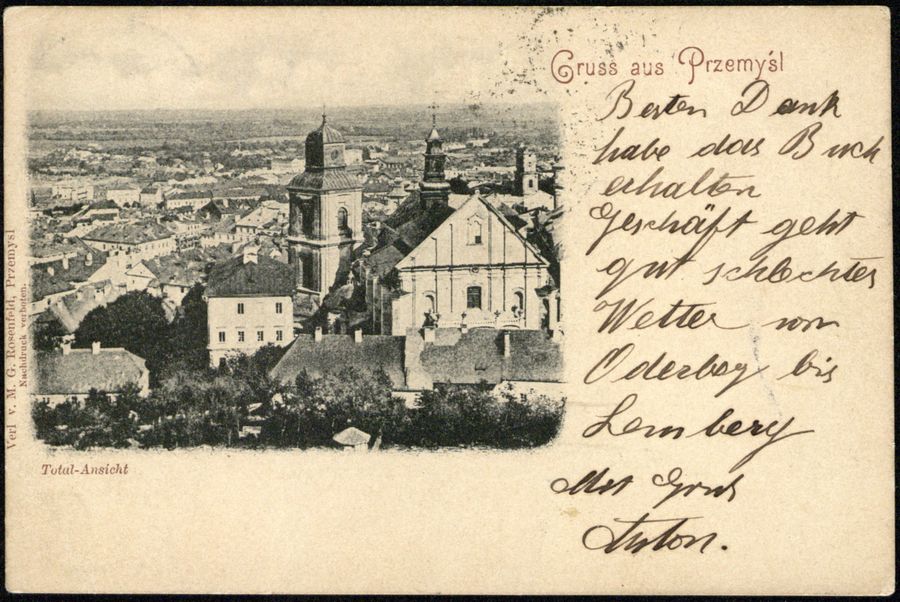 Gruss aus Przemyśl
Besten Dank
habe das Buch
erhalten
Geschäft geht
gut schlechtes
Wetter von
Oderberg bis
Lemberg
Mit Gruß
Anton.
Verl v. M. G. Rosenfeld, Przemyśl
Nachdruck verboten.
Total-Ansicht